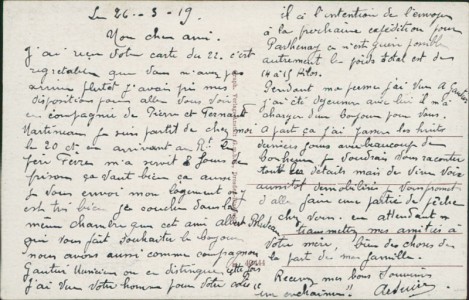 Le 26-3-19.
Mon cher ami.
J'ai reçu votre carte du 22. c'est
regretable que vous m'avez pas
j'avais pris mes
dispositions pour aller vous voir
en compagnie de Pierre et Fernand
Martineau je suis partit de chez moi
le 20 ct. en arrivant au Rt. le
m'a servit 8 jours de
prison ça vaut bien ça aussi
je vous envoi mon logement qui
est très bien je couche dans la
même chambre que cet ami Albert
qui vous fait souhaiter le bonjour
nous avons aussi comme compagnon
Gautier on ce distingue
j'ai vu votre homme pour votre colis
il a l'intention de l'envoyer
à la prochaine expédition pour
Parthenay ce n'est guère possible
autrement le poids total est de
14 à 15 kilos.
Pendant ma perme j'ai vu A Gautier
j'ai été déjeuner avec lui il m'a
chargé d'un bonjour pour vous.
A part ça j'ai passé les huits
derniers jours avec beaucoup de
bonheur je voudrais vous raconter
tout les détails mais de vive voix
aussitôt démobilisé je vous promet
d'aller faire une partie de pêche
chez vous. en attendant
transmettez mes amitiés à
votre mère, bien des choses de
la part de ma famille.
Recevez mes bons souvenirs